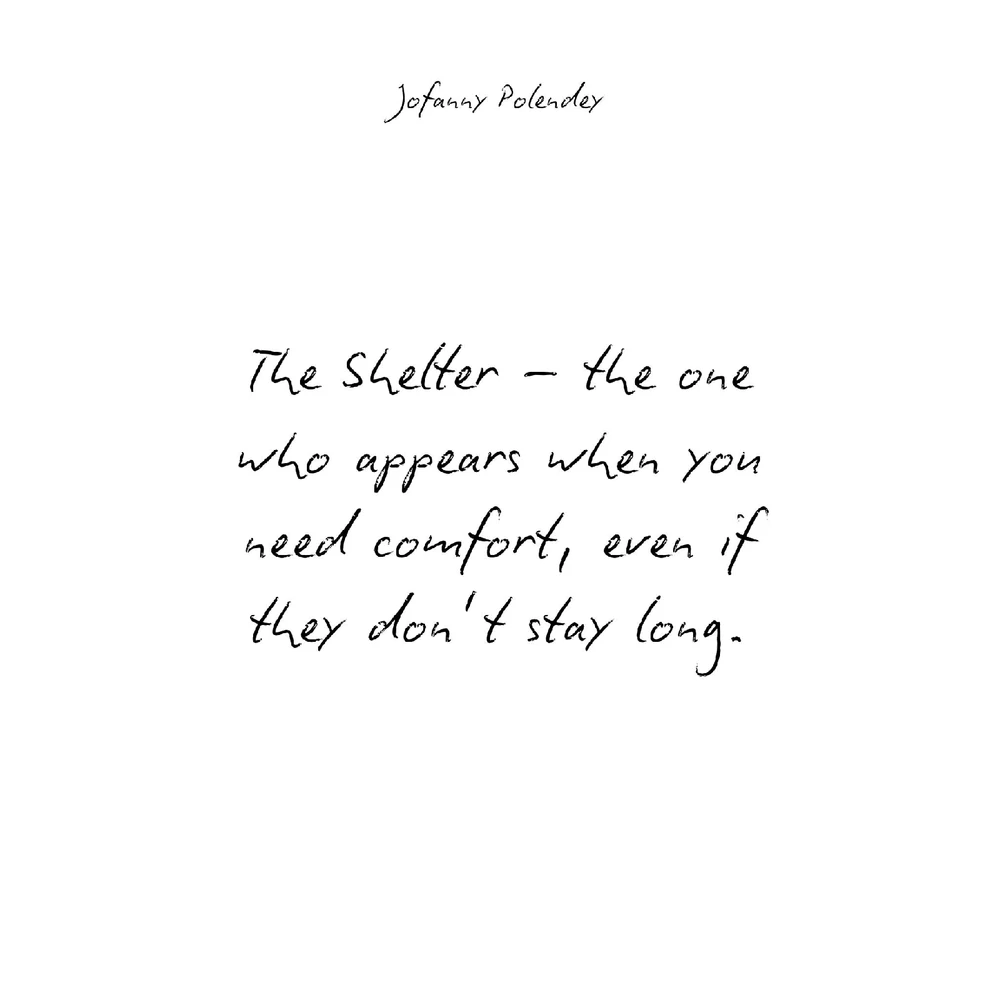 Jofanny Polendey
The Shelter – the one
who appears when you
need comfort, even if
they don't stay long.